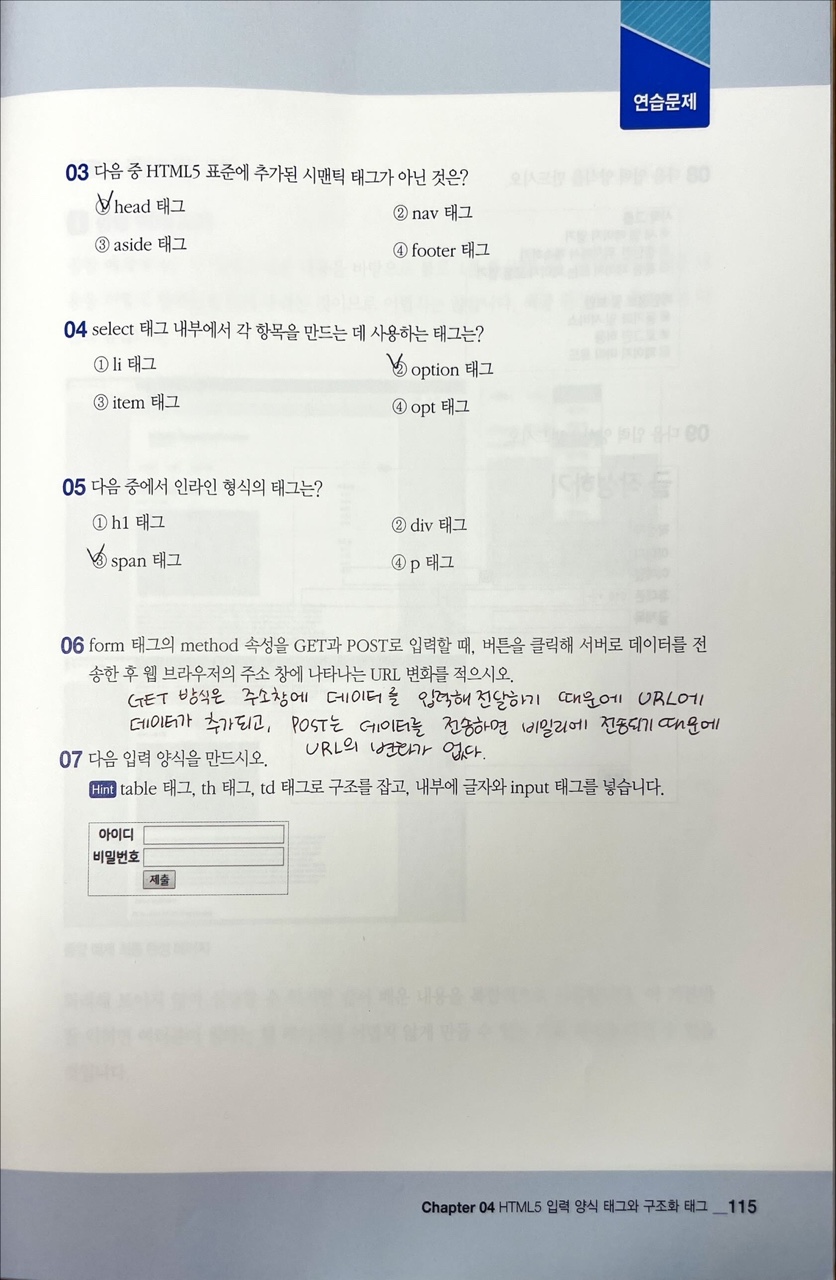 연습문제
03 다음 중 HTML5 표준에 추가된 시맨틱 태그가 아닌 것은?
① head 태그
② nav 태그
③ aside 태그
④ footer 태그
04 select 태그 내부에서 각 항목을 만드는 데 사용하는 태그는?
① li 태그
② option 태그
③ item 태그
④ opt 태그
05 다음 중에서 인라인 형식의 태그는?
① h1 태그
② div 태그
③ span 태그
④ p 태그
06 form 태그의 method 속성을 GET과 POST로 입력할 때, 버튼을 클릭해 서버로 데이터를 전
송한 후 웹 브라우저의 주소 창에 나타나는 URL 변화를 적으시오.
GET 방식은 주소창에 데이터를 입력해 전달하기 때문에 URL에
데이터가 추가되고, POST는 데이터를 전송하면 비밀리에 전송되기 때문에
URL의 변화가 없다.
07 다음 입력 양식을 만드시오.
Hint table 태그, th 태그, td 태그로 구조를 잡고, 내부에 글자와 input 태그를 넣습니다.
아이디
비밀번호
제출
Chapter 04 HTML5 입력 양식 태그와 구조화 태그 __115